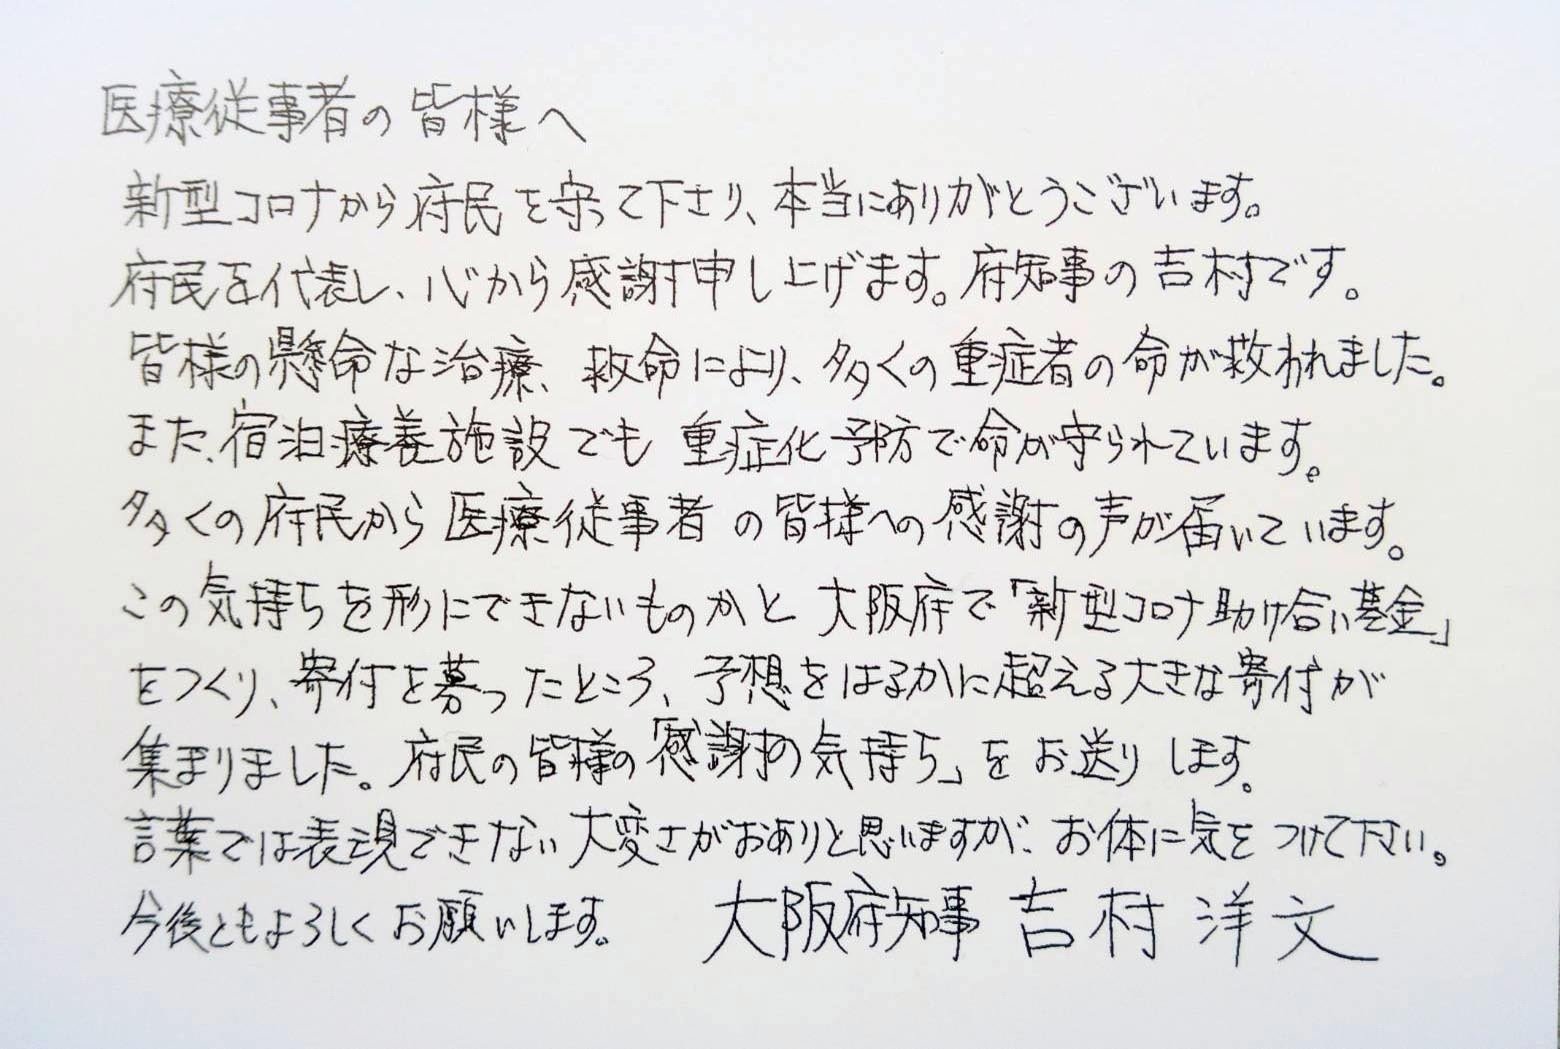 医療従事者の皆様へ
新型コロナから府民を守って下さり、本当にありがとうございます。
府民を代表し、心から感謝申し上げます。府知事の吉村です。
皆様の懸命な治療、救命により、多くの重症者の命が救われました。
また、宿泊療養施設でも重症化予防で命が守られています。
多くの府民から医療従事者の皆様への感謝の声が届いています。
この気持ちを形にできないものかと大阪府で「新型コロナ助け合い基金」
をつくり、寄付を募ったところ、予想をはるかに超える大きな寄付が
集まりました。府民の皆様の「感謝の気持ち」をお送りします。
言葉では表現できない大変さがおありと思いますが、お体に気をつけて下さい。
今後ともよろしくお願いします。 大阪府知事 吉村 洋文